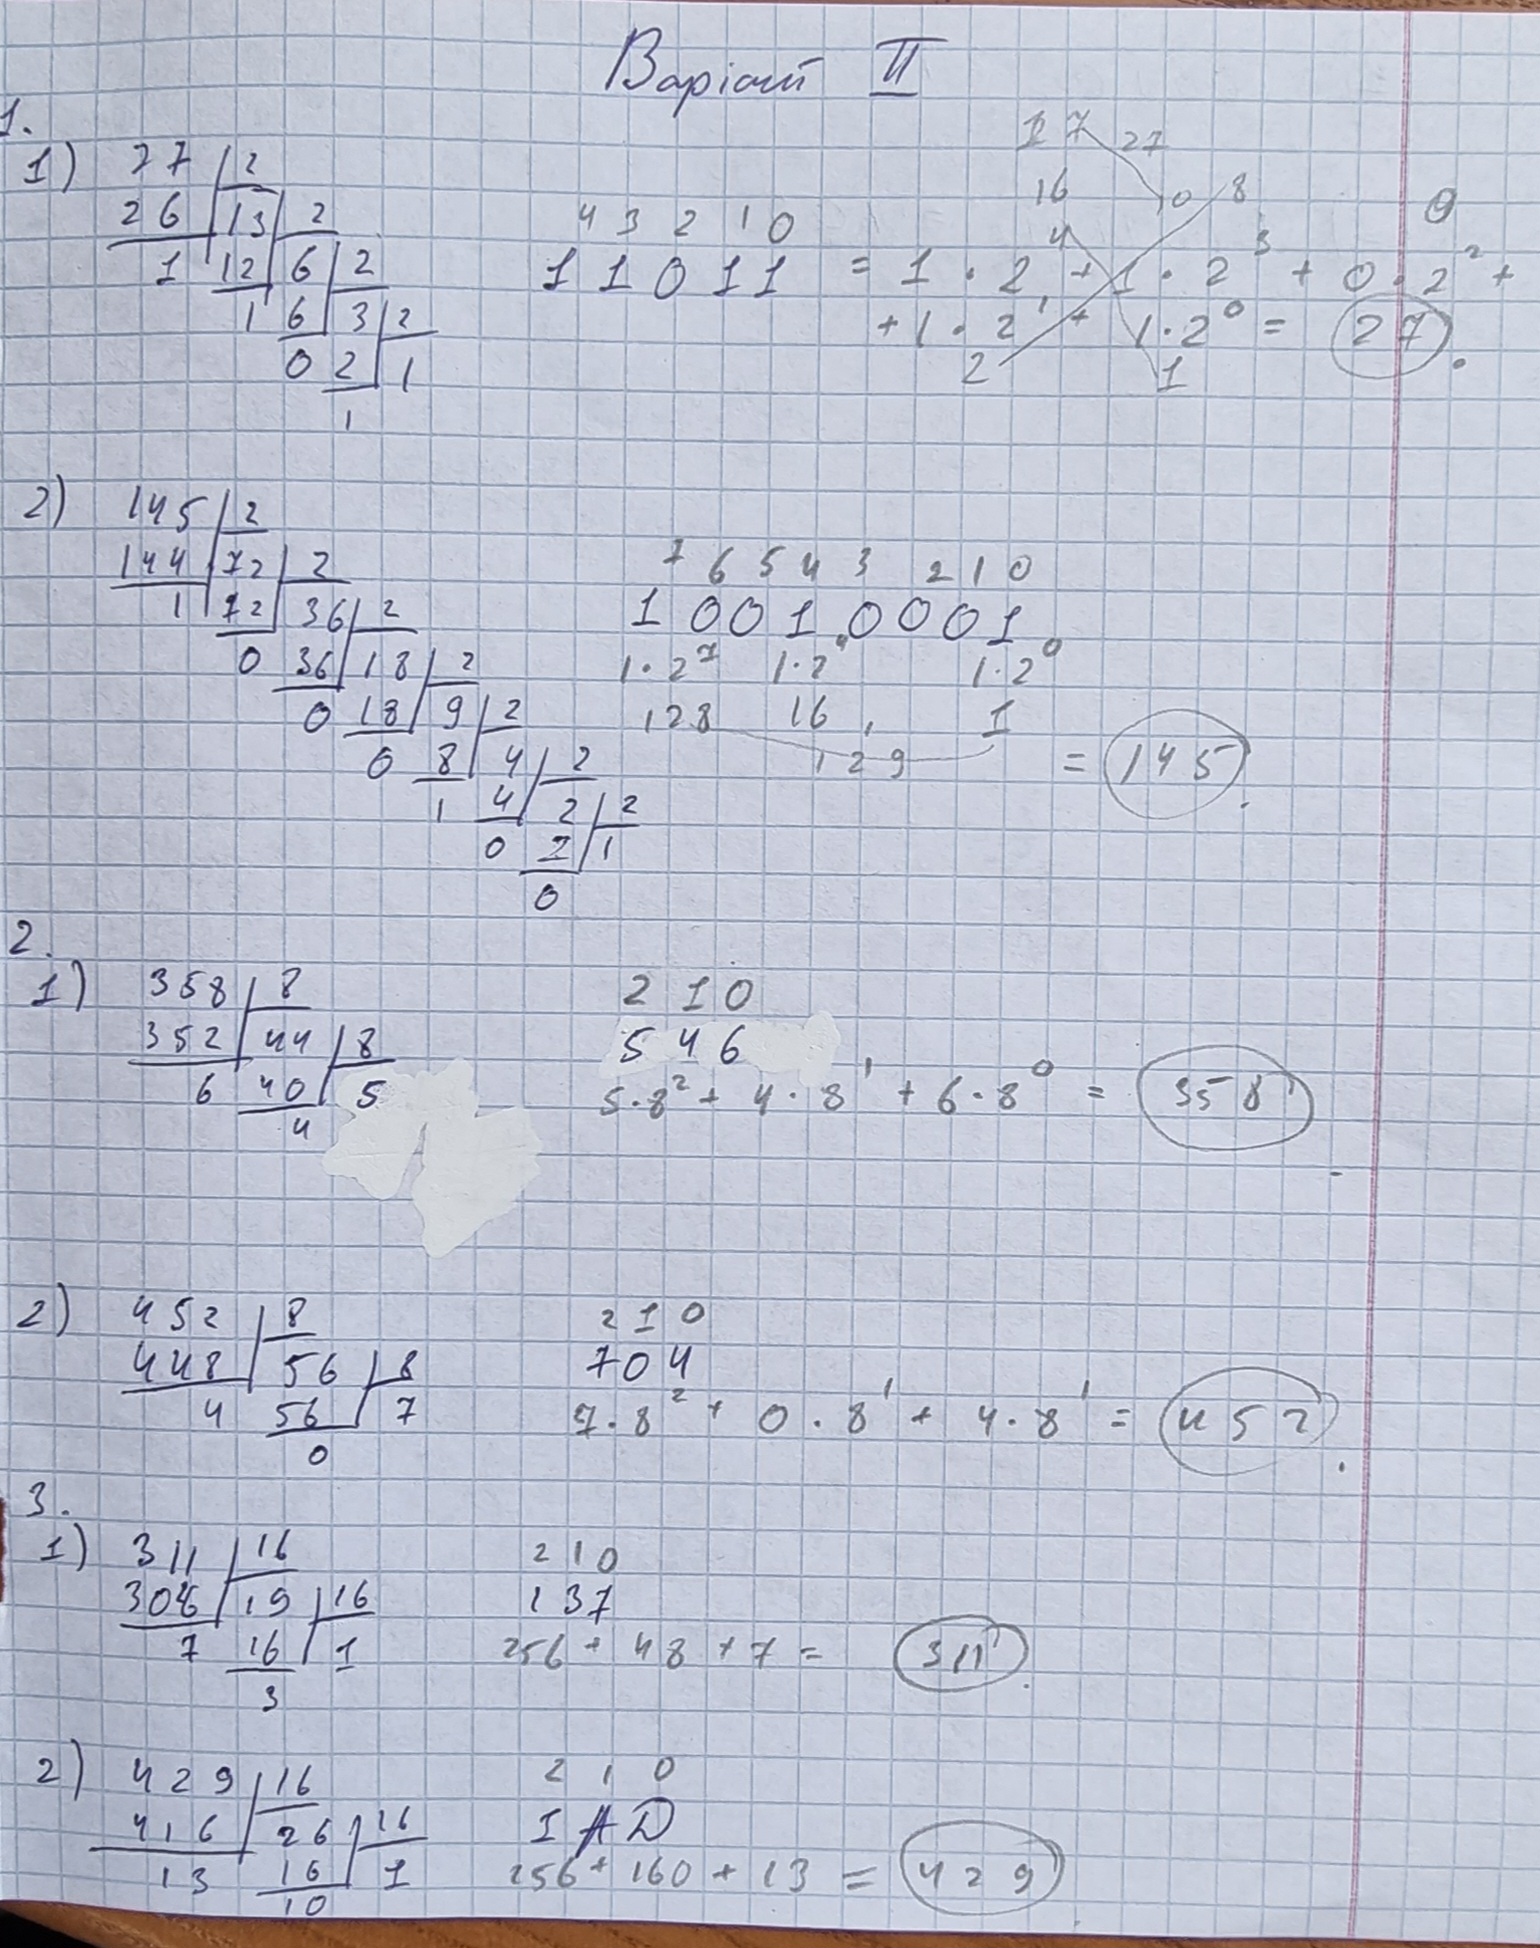 Варіант II
1.
1) 27 | 2
26 | 13 | 2
1 12 | 6 | 2
1 6 | 3 | 2
0 2 | 1
1
17 27
16 10 8 0
4 3 2 1 0
1 1 0 1 1 = 1 · 2⁴ + 1 · 2³ + 0 · 2² +
+ 1 · 2¹ + 1 · 2⁰ = 27.
2 1
2) 145 | 2
144 | 72 | 2
1 72 | 36 | 2
0 36 | 18 | 2
0 18 | 9 | 2
0 8 | 4 | 2
1 4 | 2 | 2
0 2 | 1
0
7 6 5 4 3 2 1 0
1 0 0 1 0 0 0 1.
1·2⁷ 1·2⁴ 1·2⁰
128 16 1
129 = 145.
2.
1) 358 | 8
352 | 44 | 8
6 40 | 5
4
2 1 0
5 4 6
5·8² + 4·8¹ + 6·8⁰ = 358
2) 452 | 8
448 | 56 | 8
4 56 | 7
0
2 1 0
704
7·8² + 0·8¹ + 4·8¹ = 452.
3.
1) 311 | 16
304 | 19 | 16
7 16 | 1
3
2 1 0
137
256 + 48 + 7 = 311.
2) 429 | 16
416 | 26 | 16
13 16 | 1
10
2 1 0
1 A D
256 + 160 + 13 = 429.